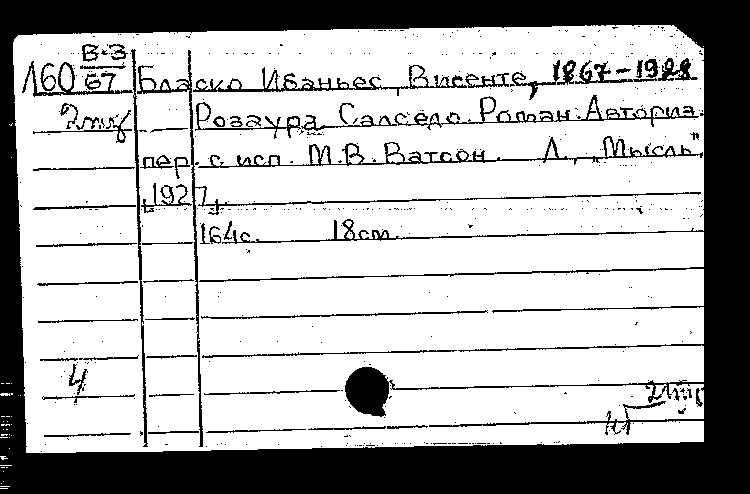 В-3
160 67 Бласко Ибаньес, Висенте, 1867-1928
Розаура Салседо. Роман. Авториз.
пер. с исп. М.В. Ватсон. Л., „Мысль",
[1927].
164с. 18см.
4